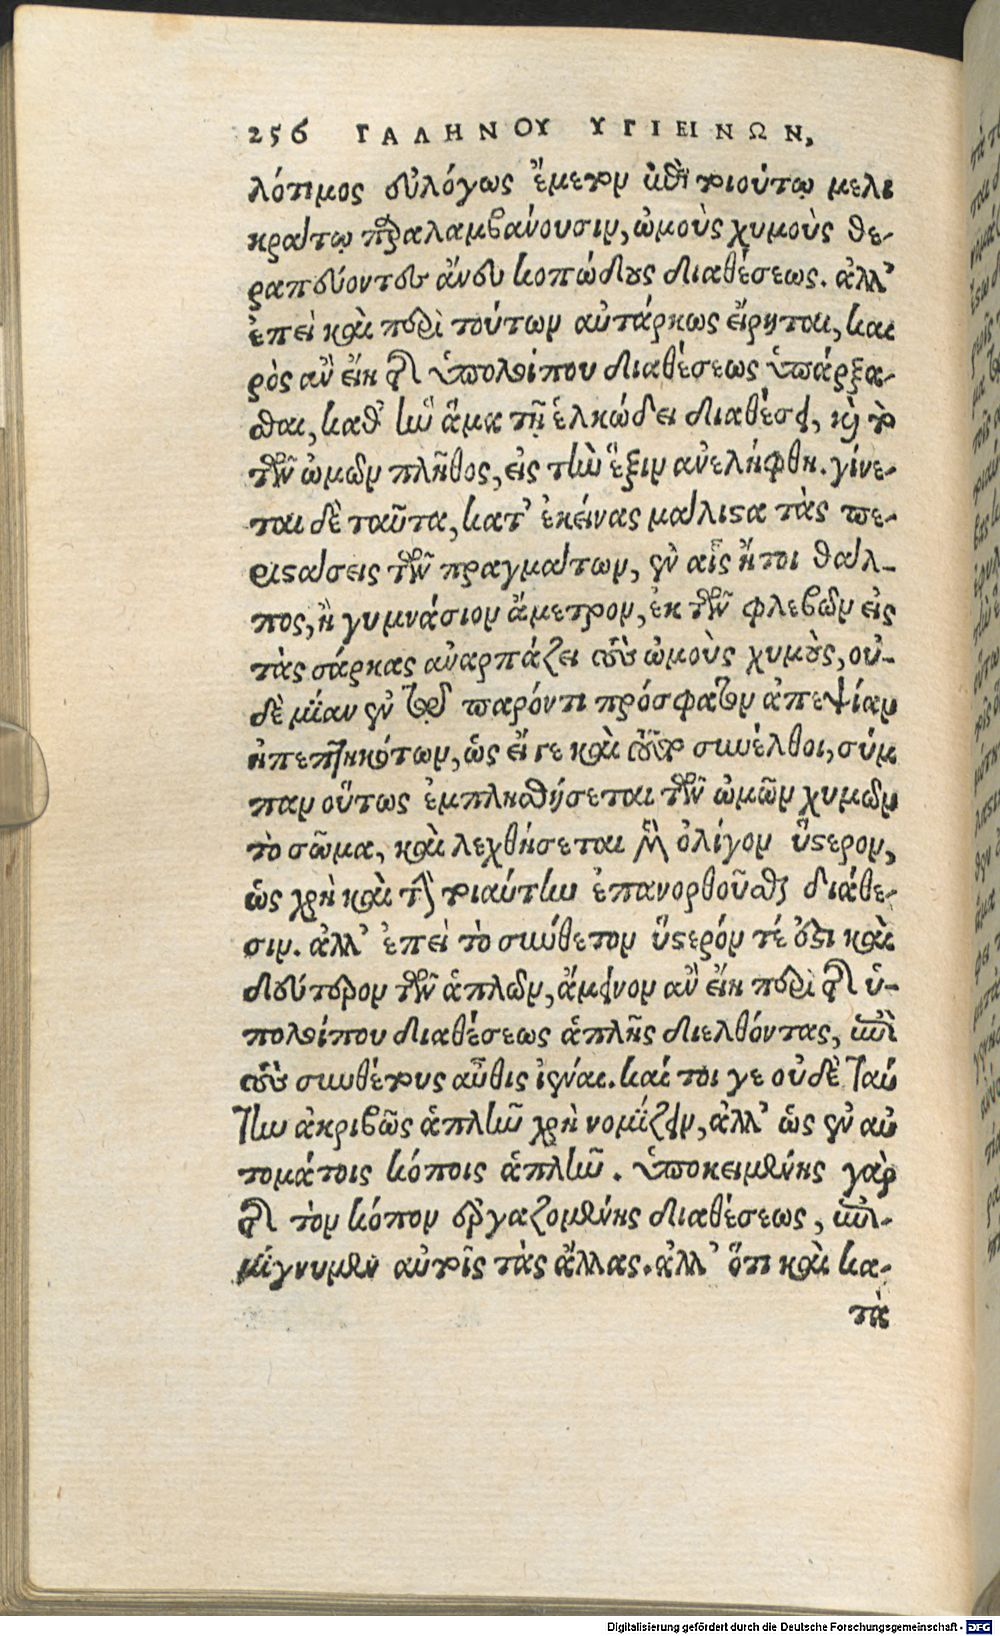 256 ΓΑΛΗΝΟΥ ΥΓΙΕΙΝΩΝ,
λότιμος εὐλόγως ἔμετον ἐπὶ τοιούτῳ μελι
κράτῳ παραλαμβάνουσιν, ὠμοὺς χυμοὺς θε-
ραπεύοντες ἄνευ κοπώδους διαθέσεως. ἀλλ’
ἐπεὶ καὶ περὶ τούτων αὐτάρκως εἴρηται, και
ρὸς ἂν εἴη τῆς ὑπολοίπου διαθέσεως ὑπάρξα-
σθαι, καθ’ ἣν ἅμα τῇ ἑλκώδει διαθέσει, καὶ τὸ
τῶν ὠμῶν πλῆθος, εἰς τὴν ἕξιν ἀνελήφθη. γίνε-
ται δὲ ταῦτα, κατ’ ἐκείνας μάλιστα τὰς πε-
ριστάσεις τῶν πραγμάτων, ἐν αἷς ἤτοι θάλ-
πος, ἢ γυμνάσιον ἄμετρον, ἐκ τῶν φλεβῶν εἰς
τὰς σάρκας ἀναρπάζει τοὺς ὠμοὺς χυμοὺς, οὐ-
δὲ μίαν ἐν τῷ παρόντι πρόσφατον ἀπεψίαν
ἠπεπτηκότων, ὡς εἴ γε καὶ τοῦτο συνέλθοι, σύμ
παν οὕτως ἐμπλησθήσεται τῶν ὠμῶν χυμῶν
τὸ σῶμα, καὶ λεχθήσεται μετ’ ὀλίγον ὕστερον,
ὡς χρὴ καὶ τὴν τοιαύτην ἐπανορθοῦσθαι διάθε-
σιν. ἀλλ’ ἐπεὶ τὸ σύνθετον ὕστερόν τέ ἐστι καὶ
δεύτερον τῶν ἁπλῶν, ἄμεινον ἂν εἴη περὶ τῆς ὑ-
πολοίπου διαθέσεως ἁπλῆς διελθόντας, ἐπὶ
τοὺς συνθέτους αὖθις ἰέναι. καί τοι γε οὐδὲ ταύ
την ἀκριβῶς ἁπλῆν χρὴ νομίζειν, ἀλλ’ ὡς ἐν αὐ
τομάτοις κόποις ἁπλῆν. ὑποκειμένης γὰρ
τῆς τὸν κόπον ἐργαζομένης διαθέσεως, ἐπι-
μίγνυμεν αὐτοῖς τὰς ἄλλας. ἀλλ’ ὅτι καὶ κα-
τὰ
Digitalisierung gefördert durch die Deutsche Forschungsgemeinschaft - DFG